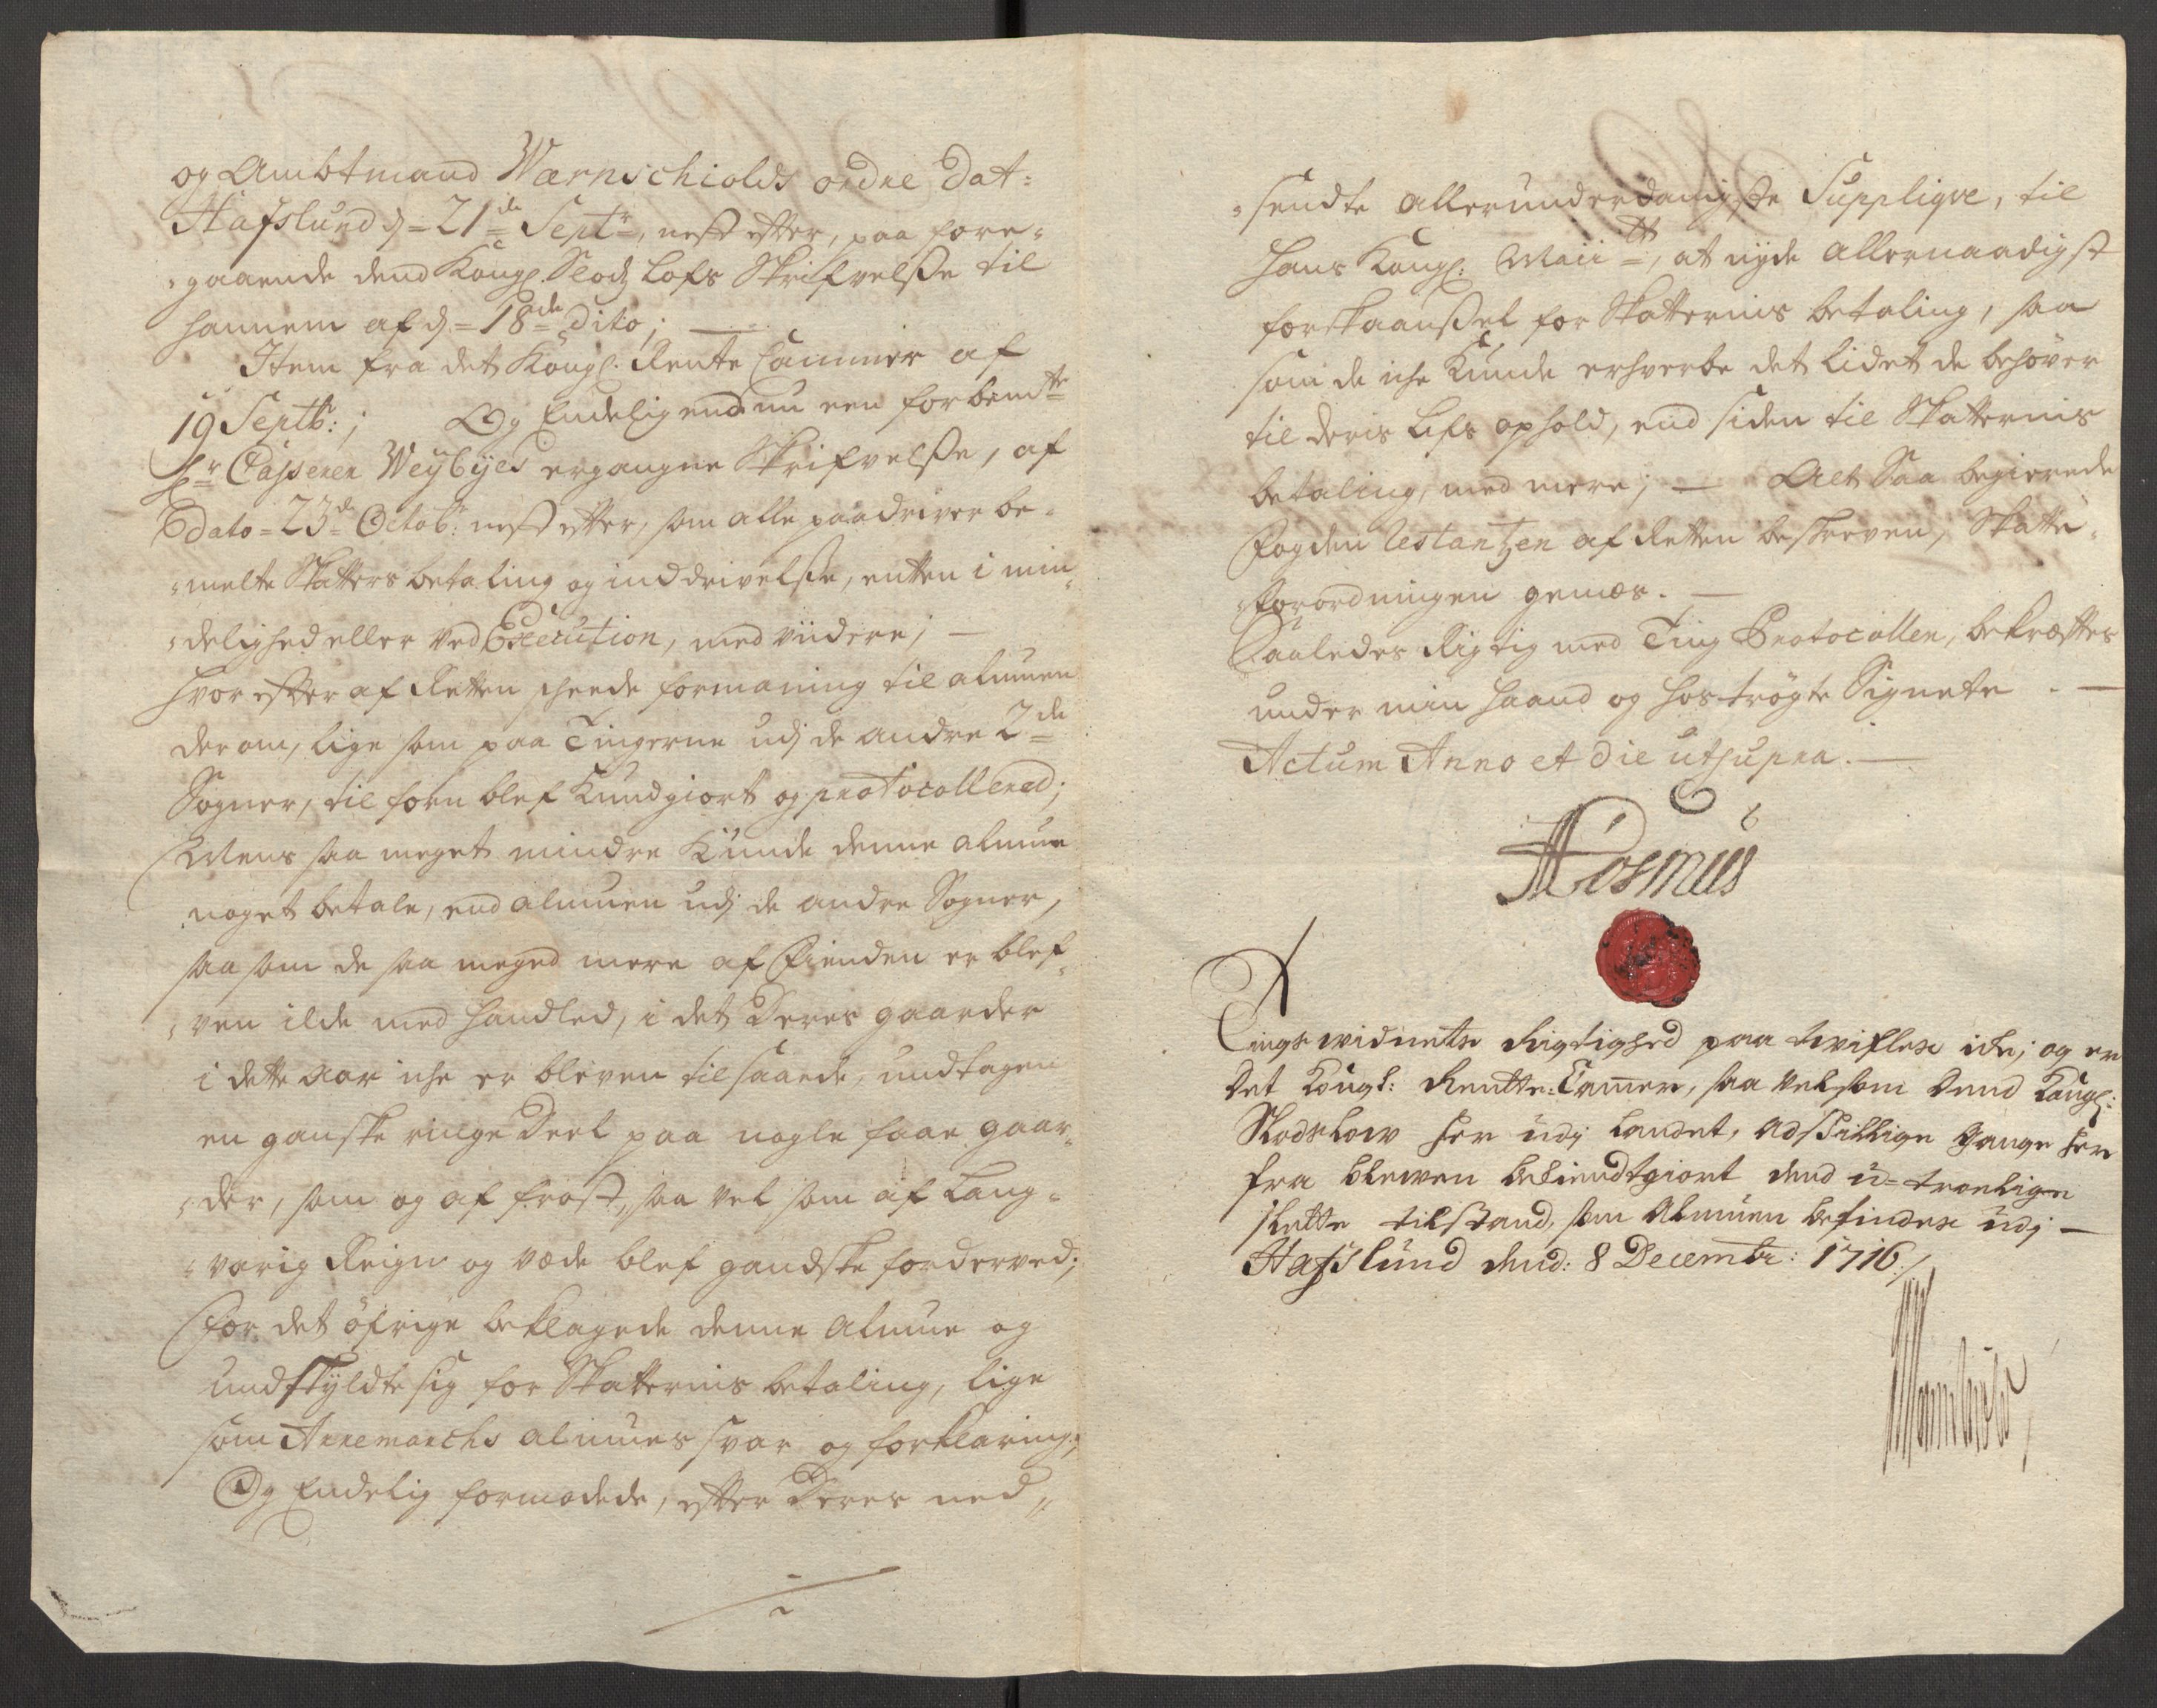 og Ambtmand Wærnschiolds ordre dat:
Hafslund d: 21de Septr, nest efter, paa fore-
gaaende dend Kongl. Slodz Lofs Skrifvelße til
hannem af d: 18de dito;
Item fra det Kongl. Rente Cammer af
19 Septb:; Og Endelig end nu een forbemte
Hr Casserer Weybyes ergangne Skrifvelße, af
dato 23de Octob: nest efter, som alle paadriver be-
melte Skatters betaling og inddrivelße, entten i min-
delighed eller ved Execution, med viidere;
hvor efter af Retten skeede formaning til almuen
derom, lige som paa Tingerne udj de andre 2de
Sogner, til forn blef Kundgiort og protocollered;
Mens saa meget mindre Kunde denne almue
noget betale, end almuen udj de andre Sogner,
saa som de saa meged mere af Fienden er blef-
ven ilde med handled, i det Deres gaarder
i dette Aar iche er bleven til saaede, undtagen
en ganske ringe Deel paa nogle faae gaar-
der, som og af frost, saa vel som af Lang-
varig Reign og væde blef gandske forderved;
For det öfrige beklagede denne Almue og
undskyldte sig for Skatternis betaling, lige
som Arremarchs almues svar og forklaring;
Og Endelig formodede, efter Deres ned-
sendte allerunderdanigste Suppliqve, til
Hans Kongl: Maiitt, at nyde allernaadigst
forskaanßel for Skatternis betaling, saa
som de iche Kunde erhverbe det lidet de behöver
til deris Lifs ophold, end siden til Skatternis
betaling, med mere; Alt Saa begierede
Fogden Restantzen af Retten beskreven, Skatte-
forordningen gemæs.
Saaledes Rigtig med Ting Protocollen, bekræfter
under min haand og hoströgte Signete.
Actum Anno et die utsupra.
Tingswidnetz Rigtighed paa twifles icke; og er
det Kongl: Rentte-Cammer, saa velsom dend Kongl:
Slodslow her udj Landet, adskillige gange her
fra blewen bekiendtgiort dend u-troelige
slette tilstand, som Almuen befindes udj
Hafslund dend: 8 Decembr: 1716